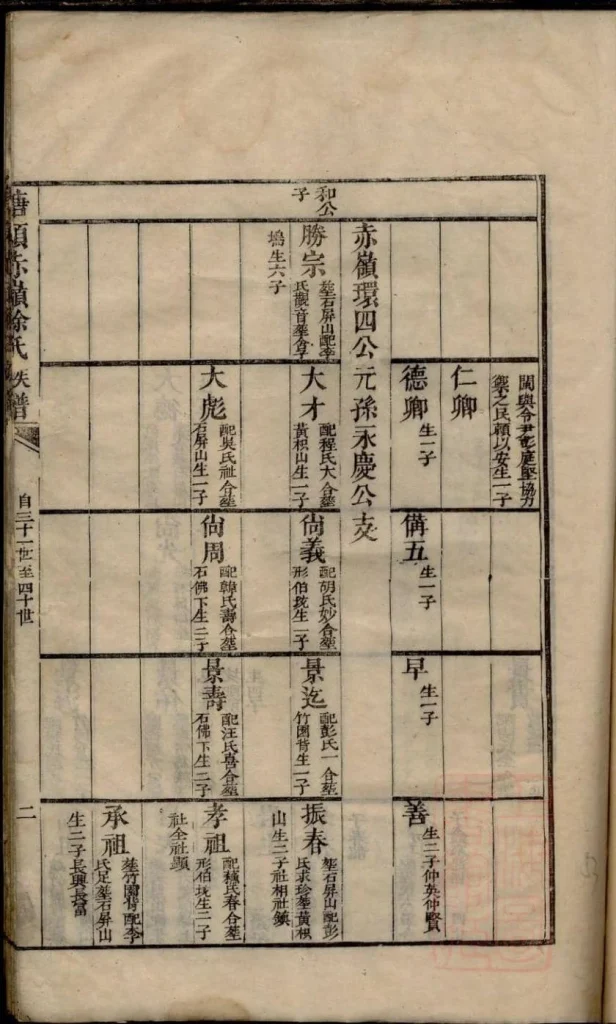 和公
子
閩與令尹彭庭堅協力
禦之民賴以安生一子
仁卿
德卿
生一子
備五
生一子
早
生一子
善
生二子仲英仲賢
赤嶺環四公元孫永慶公支
勝宗
塟石屏山配李
氏觀音塟舍子
塢生六子
大才
配程氏大合塟
黃梘山生一子
尙義
配胡氏妙合塟
形伯坑生一子
景迄
配彭氏一合塟
竹園背生一子
振春
塟石屏山配彭
氏求珍塟黃梘
山生二子社相社鎮
大彪
配吳氏社合塟
石屏山生一子
尙周
配韓氏壽合塟
石佛下生二子
景壽
配汪氏喜合塟
石佛下生二子
孝祖
氏春合塟
形伯坑生二子
社全社顯
承祖
塟竹園背配李
氏足塟石屏山
生二子長興長富
塘頭赤嶺徐氏族譜
自三十一世至四十世
二